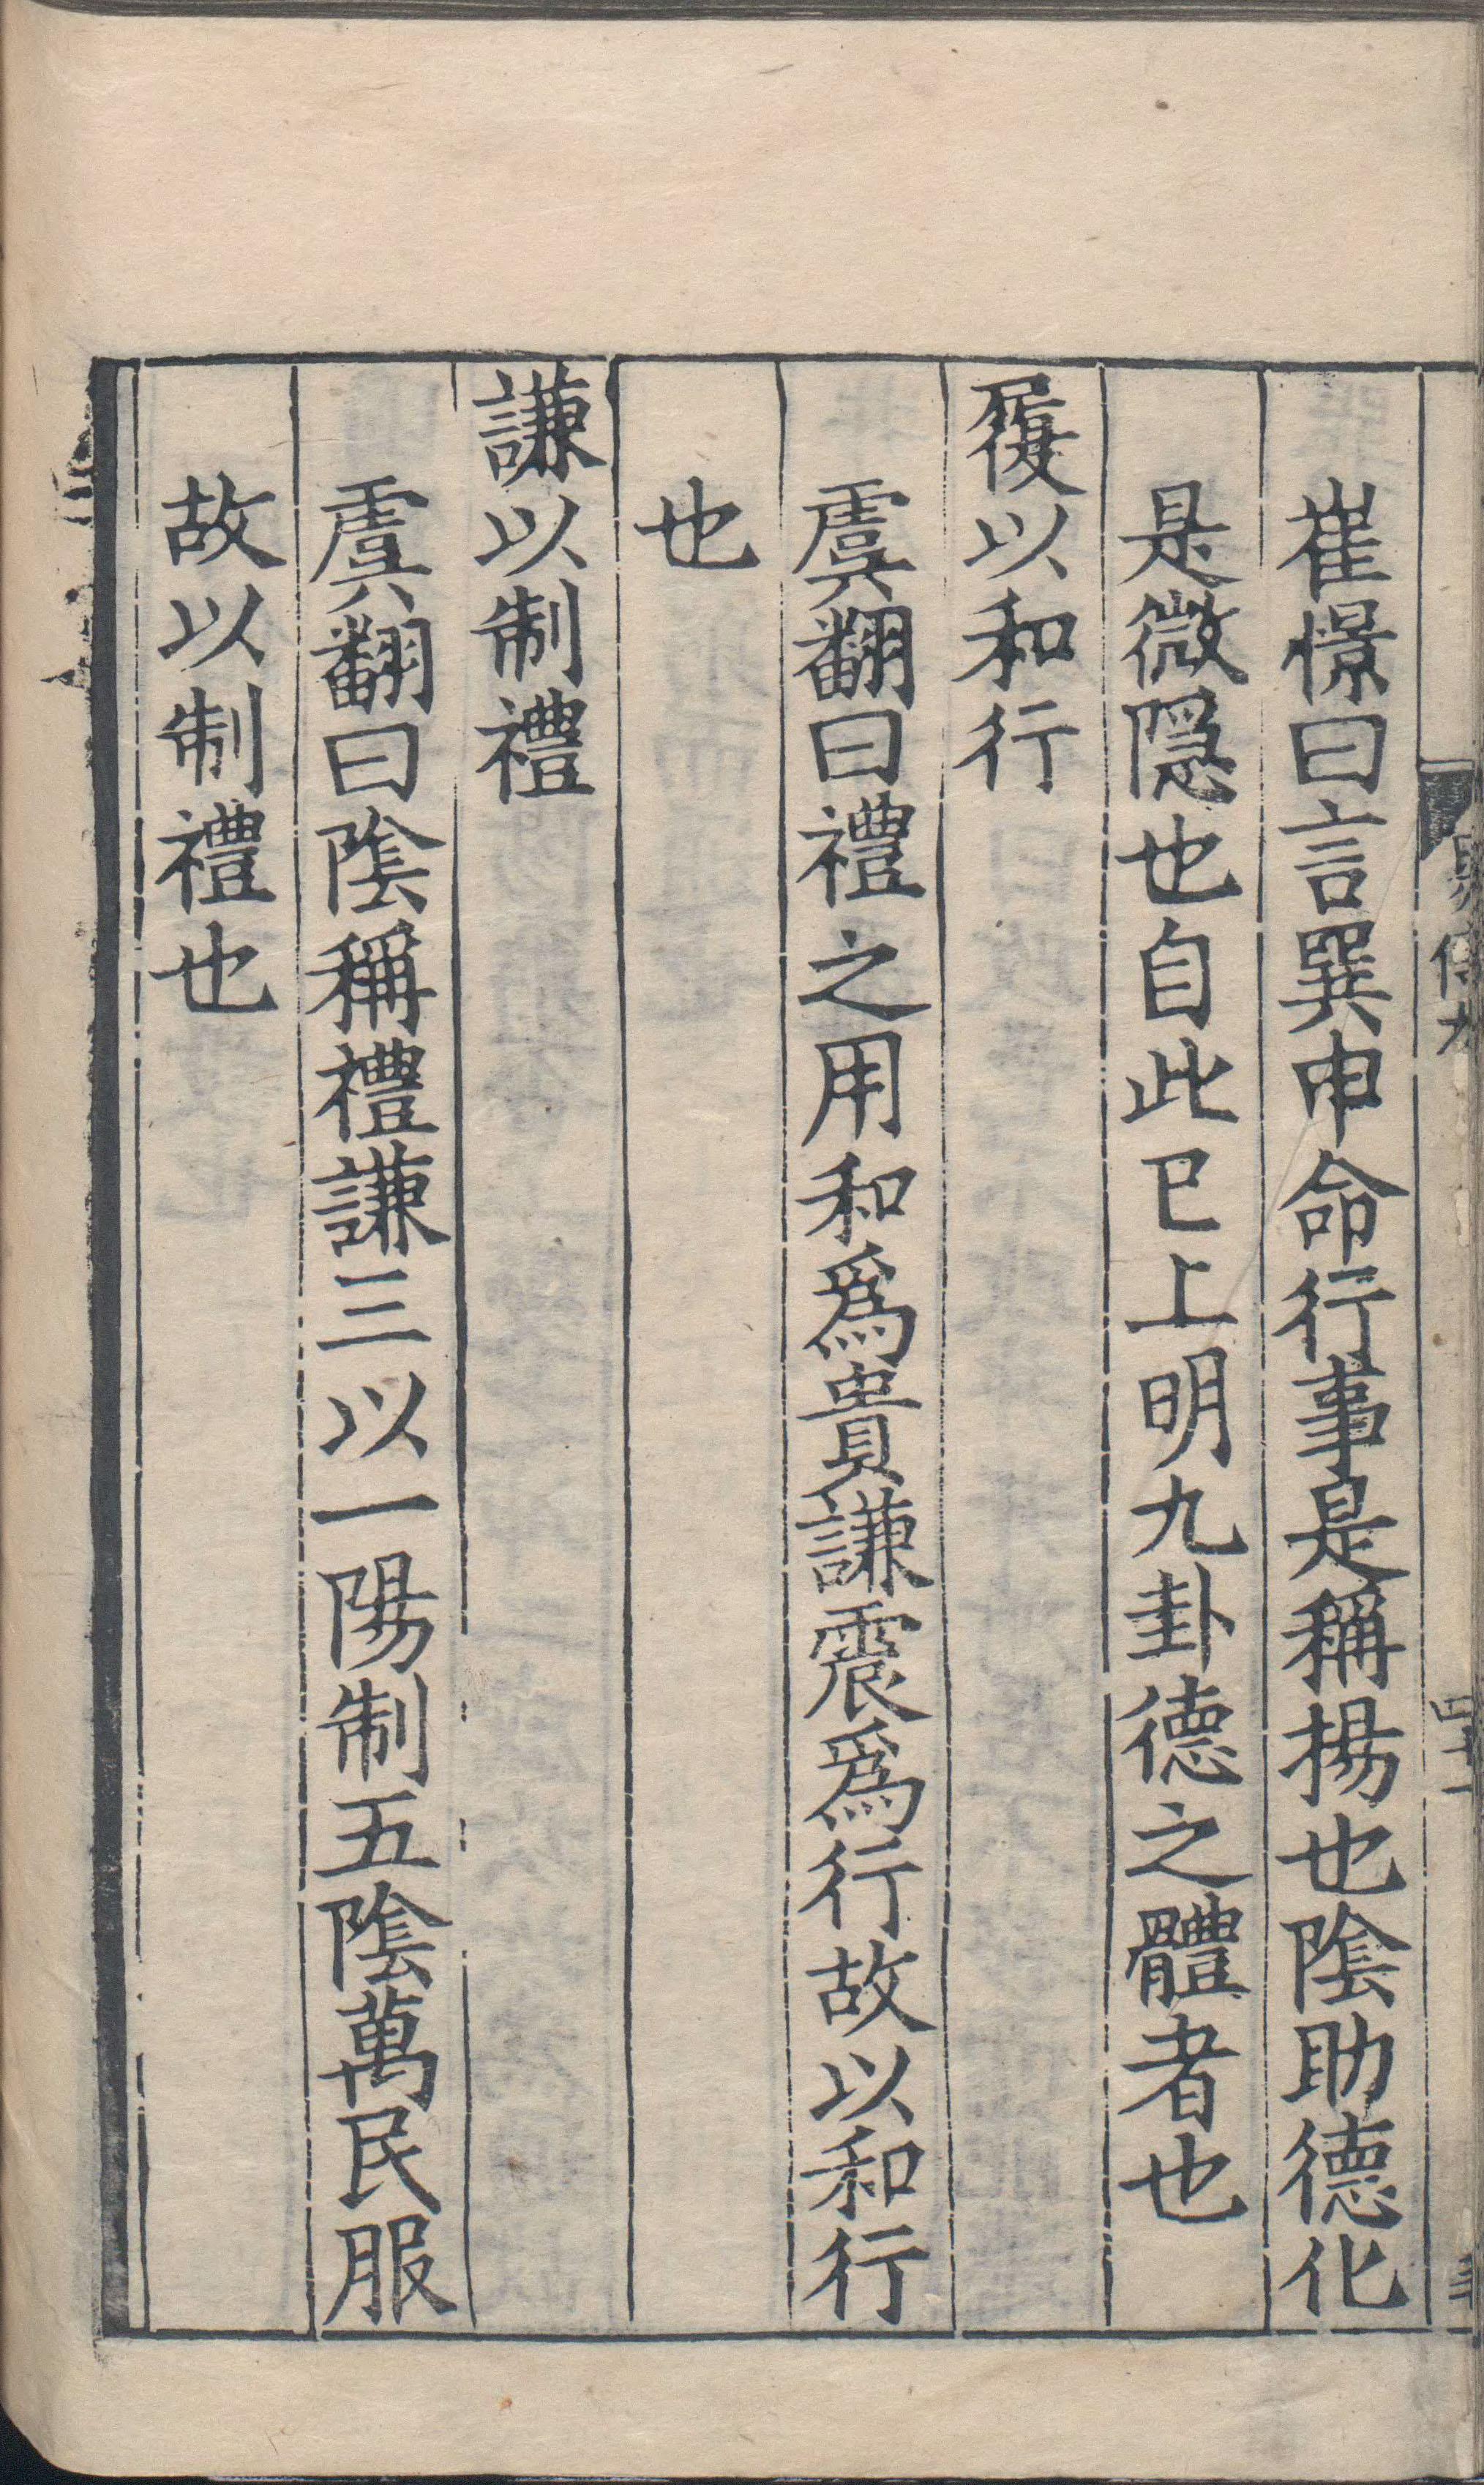 崔憬曰言巽申命行事是稱揚也陰助德化
是微隱也自此已上明九卦德之體者也
履以和行
虞翻曰禮之用和爲貴謙震爲行故以和行
也
謙以制禮
虞翻曰陰稱禮謙三以一陽制五陰萬民服
故以制禮也